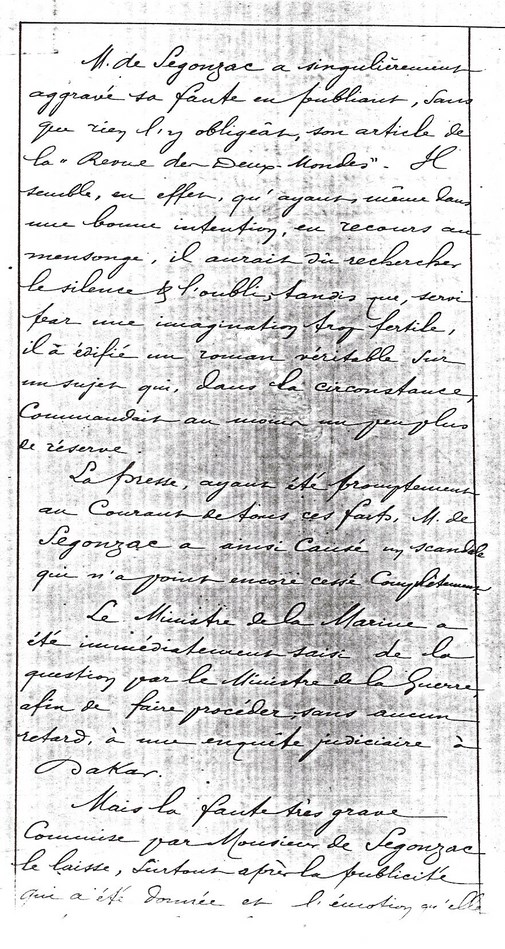 M. de Segonzac a singulièrement
aggravé sa faute en publiant, sans
que rien l'y obligeât, son article de
la "Revue des Deux-Mondes". Il
semble, en effet, qu'ayant, même dans
une bonne intention, eu recours au
mensonge, il aurait dû rechercher
le silence & l'oubli, tandis que, servi
par une imagination trop fertile,
il a édifié un roman véritable sur
un sujet qui, dans la circonstance,
commandait au moins un peu plus
de réserve.
La presse, ayant été promptement
au courant de tous ces faits, M. de
Segonzac a ainsi causé un scandale
qui n'a point encore cessé complètement
Le Ministre de la Marine a
été immédiatement saisi de la
question par le Ministre de la Guerre,
afin de faire procéder, sans aucun
retard, à une enquête judiciaire à
Dakar.
Mais la faute très grave
commise par Monsieur de Segonzac
le laisse, surtout après la publicité
qui a été donnée et l'émotion qu'elle